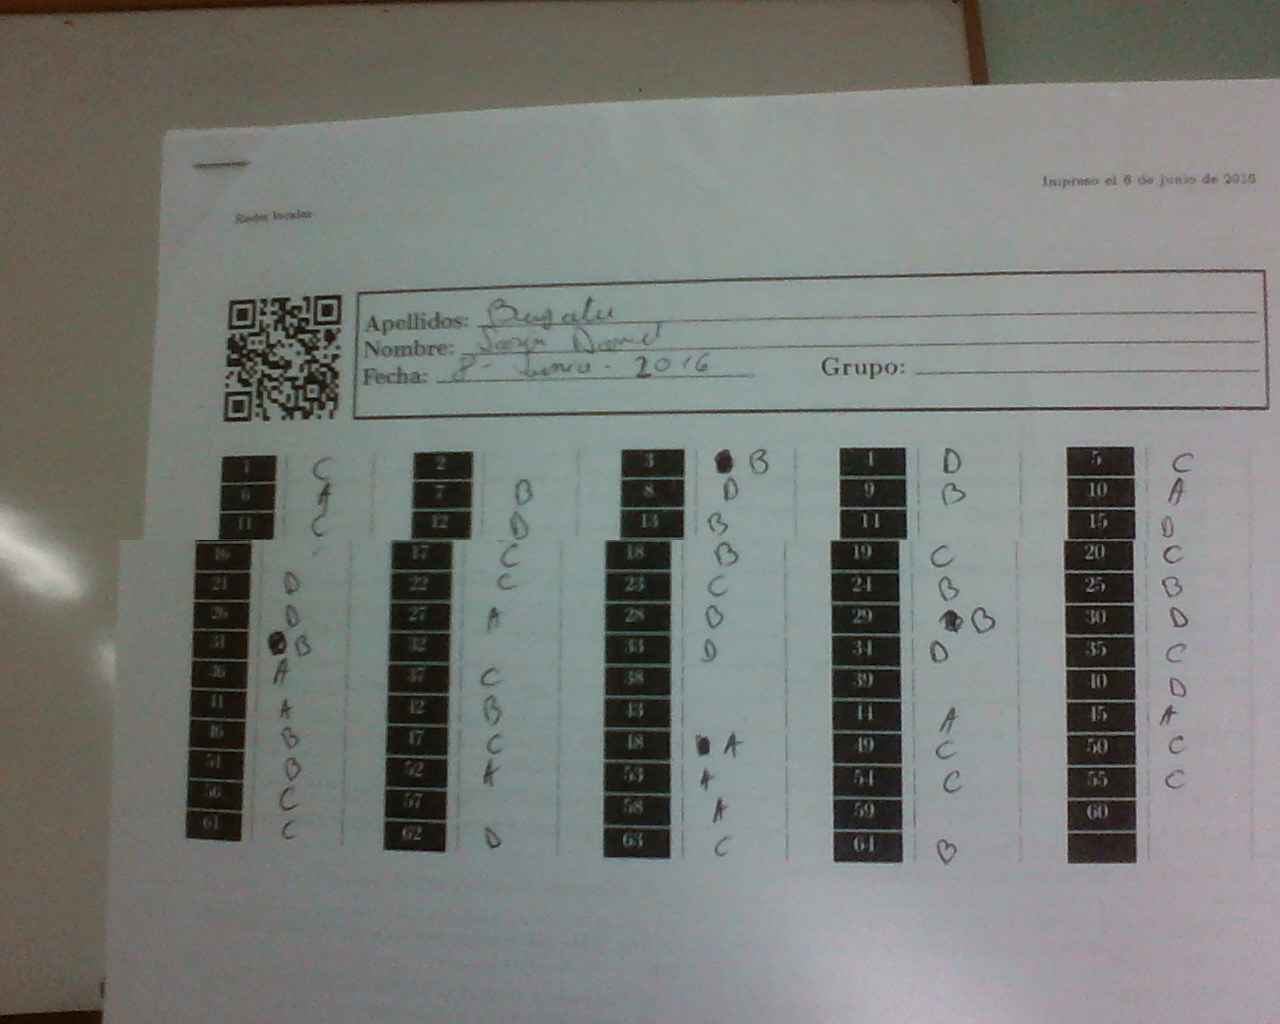 Impreso el 6 de junio de 2016
Redes locales
Apellidos:
Nombre: Daniel
Fecha: 8 - Junio - 2016 Grupo:
1 C 2 3 B 4 D 5 C
6 A 7 B 8 D 9 B 10 A
11 C 12 D 13 B 14 15 D
16 17 C 18 B 19 C 20 C
21 D 22 C 23 C 24 B 25 B
26 D 27 A 28 B 29 B 30 D
31 B 32 33 D 34 D 35 C
36 A 37 C 38 39 40 D
41 A 42 B 43 44 A 45 A
46 B 47 C 48 A 49 C 50 C
51 B 52 A 53 A 54 C 55 C
56 C 57 58 A 59 60
61 C 62 D 63 C 64 B